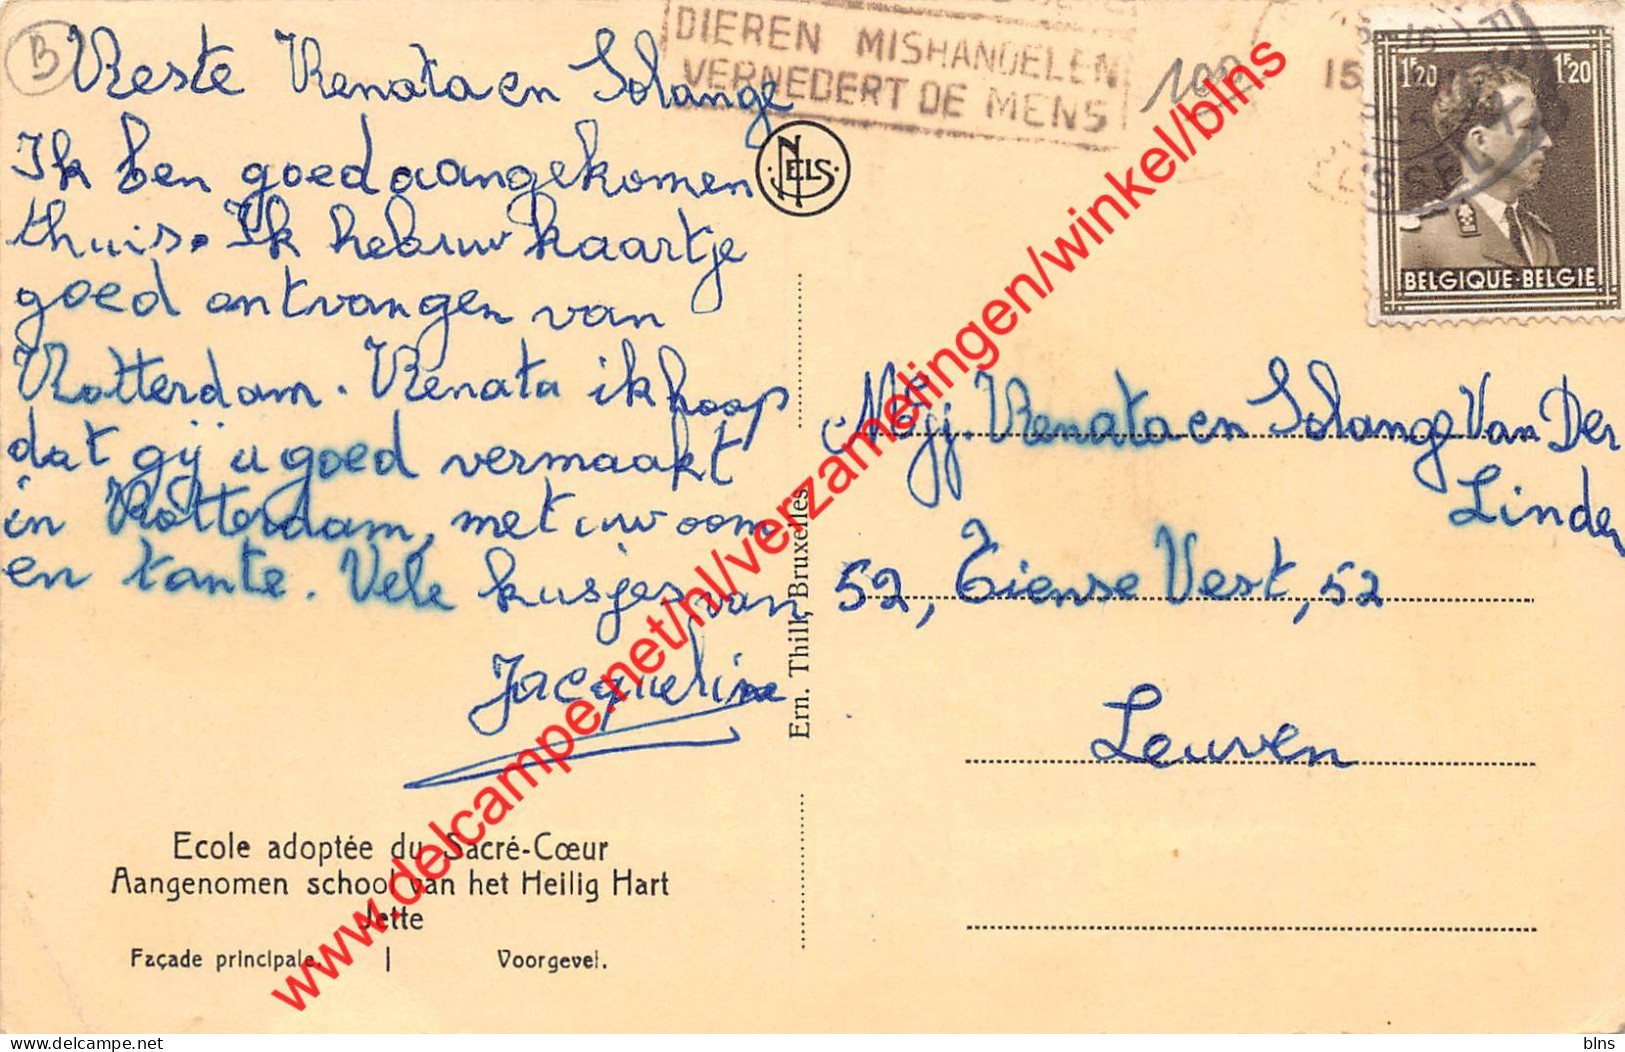 B
Beste Renata en Solange
Ik ben goed aangekomen
thuis. Ik heb uw kaartje
goed ontvangen van
Rotterdam. Renata ik hoop
dat gij u goed vermaakt
in Rotterdam, met uw oom
en tante. Vele kusjes van
Jacqueline
Ecole adoptée du Sacré-Cœur
Aangenomen school van het Heilig Hart
Jette
Façade principale. | Voorgevel.
NELS
Ern. Thill, Bruxelles
DIEREN MISHANDELEN
VERNEDERT DE MENS
100
15
1F20 1F20
BELGIQUE·BELGIE
Mejj. Renata en Solange Van Der
Linden
52, Tiense Vest, 52
Leuven
www.delcampe.net/nl/verzamelingen/winkel/blns
delcampe.net
blns